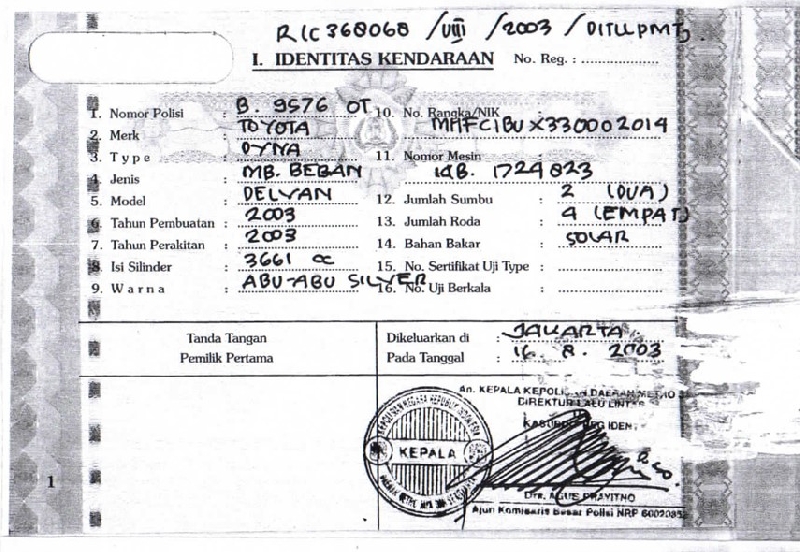 RIC368068 / VIII / 2003 / DITLLPMJ.
I. IDENTITAS KENDARAAN No. Reg. :
1. Nomor Polisi : B. 9576 OT
2. Merk : TOYOTA
3. Type : DYNA
4. Jenis : MB. BEBAN
5. Model : DELVAN
6. Tahun Pembuatan : 2003
7. Tahun Perakitan : 2003
8. Isi Silinder : 3661 cc
9. Warna : ABU-ABU SILVER
10. No. Rangka/NIK
MHFC1BUX330002014
11. Nomor Mesin :
14B. 1724823
12. Jumlah Sumbu : 2 (DUA)
13. Jumlah Roda : 4 (EMPAT)
14. Bahan Bakar : SOLAR
15. No. Sertifikat Uji Type :
16. No. Uji Berkala :
Tanda Tangan
Pemilik Pertama
Dikeluarkan di : JAKARTA
Pada Tanggal : 16. 8. 2003
An. KEPALA KEPOLISIAN DAERAH METRO
DIREKTUR LALU LINTAS
KEPALA
Drs. AGUS PRAYITNO
Ajun Komisaris Besar Polisi NRP
1